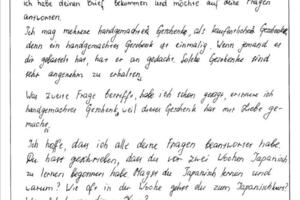 ich habe deinen Brief bekommen und möchte auf deine Fragen
antworten.
Ich mag mehrere handgemachte Geschenke, als kaufbarlich Geschenke,
denn ein handgemachtes Geschenk ist einmalig. Wenn jemand es
dir gebastelt hat, hat er an gedacht. Solche Geschenke sind
sehr angenehm zu erhalten.
Was zweite Frage betrifft, habe ich schon gesagt,
handgemachtes Geschenk, weil dieses Geschenk hat mit Liebe ge-
macht.
Ich hoffe, dass ich alle deine Fragen beantwortet habe.
Du hast geschrieben, dass du vor zwei Wochen Japanisch
zu lernen begonnen habe. Magst du Japanisch lernen und
warum? Wie oft in der Woche gehst du zum Japanischkurs?